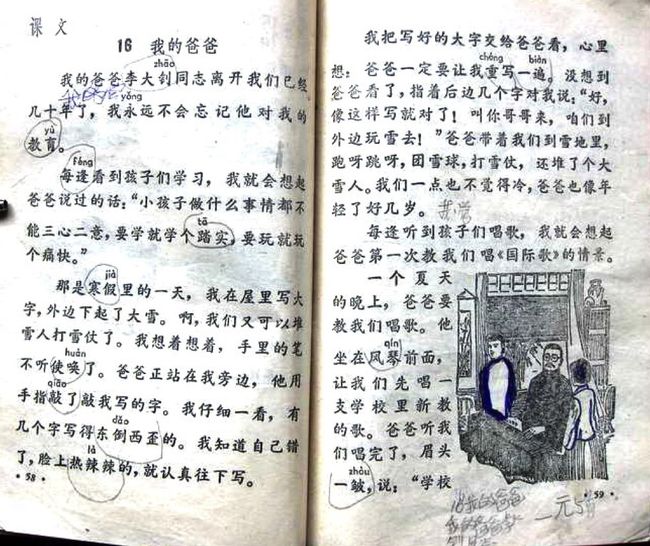 课文
16 我的爸爸
zhāo
我的爸爸李大钊同志离开我们已经
yǒng
几十年了，我永远不会忘记他对我的
yù
教育。
féng
每逢看到孩子们学习，我就会想起
爸爸说过的话：“小孩子做什么事情都不
tā
能三心二意，要学就学个踏实，要玩就玩
个痛快。”
jià
那是寒假里的一天，我在屋里写大
字，外边下起了大雪。啊，我们又可以堆
雪人打雪仗了。我想着想着，手里的笔
huàn
不听使唤了。爸爸正站在我旁边，他用
qiāo
手指敲了敲我写的字。我仔细一看，有
dǎo
几个字写得东倒西歪的。我知道自己错
là
了，脸上热辣辣的，就认真往下写。
·58·
我把写好的大字交给爸爸看，心里
chóng biàn
想：爸爸一定要让我重写一遍。没想到
爸爸看了，指着后边几个字对我说：“好，
像这样写就对了！叫你哥哥来，咱们到
外边玩雪去！”爸爸带着我们到雪地里，
跑呀跳呀，团雪球，打雪仗，还堆了个大
雪人。我们一点也不觉得冷，爸爸也像年
轻了好几岁。
每逢听到孩子们唱歌，我就会想起
爸爸第一次教我们唱《国际歌》的情景。
一个夏天
的晚上，爸爸要
教我们唱歌。他
qín
坐在风琴前面，
让我们先唱一
支学校里新教
的歌。爸爸听我
们唱完了，眉头
zhòu
一皱，说：“学校
·59·